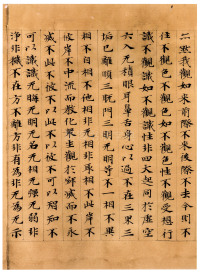 然我觀如來前際不來後際不去今則不
住不觀色不觀色如不觀色性不觀受想行
識不觀識如不觀識性非四大起同於虛空
六入无積眼耳鼻舌身心以過不在三界三
垢已離順三脫門三明无明等不一相不異
相不自相不他相非无相非取相不此岸不
彼岸不中流而教化衆生觀於寂滅而不
滅不此不彼不以此不以彼不可以智知不
可以識識无晦无明无名无相无强无弱非
淨非穢不在方不離方非有為非无為无示